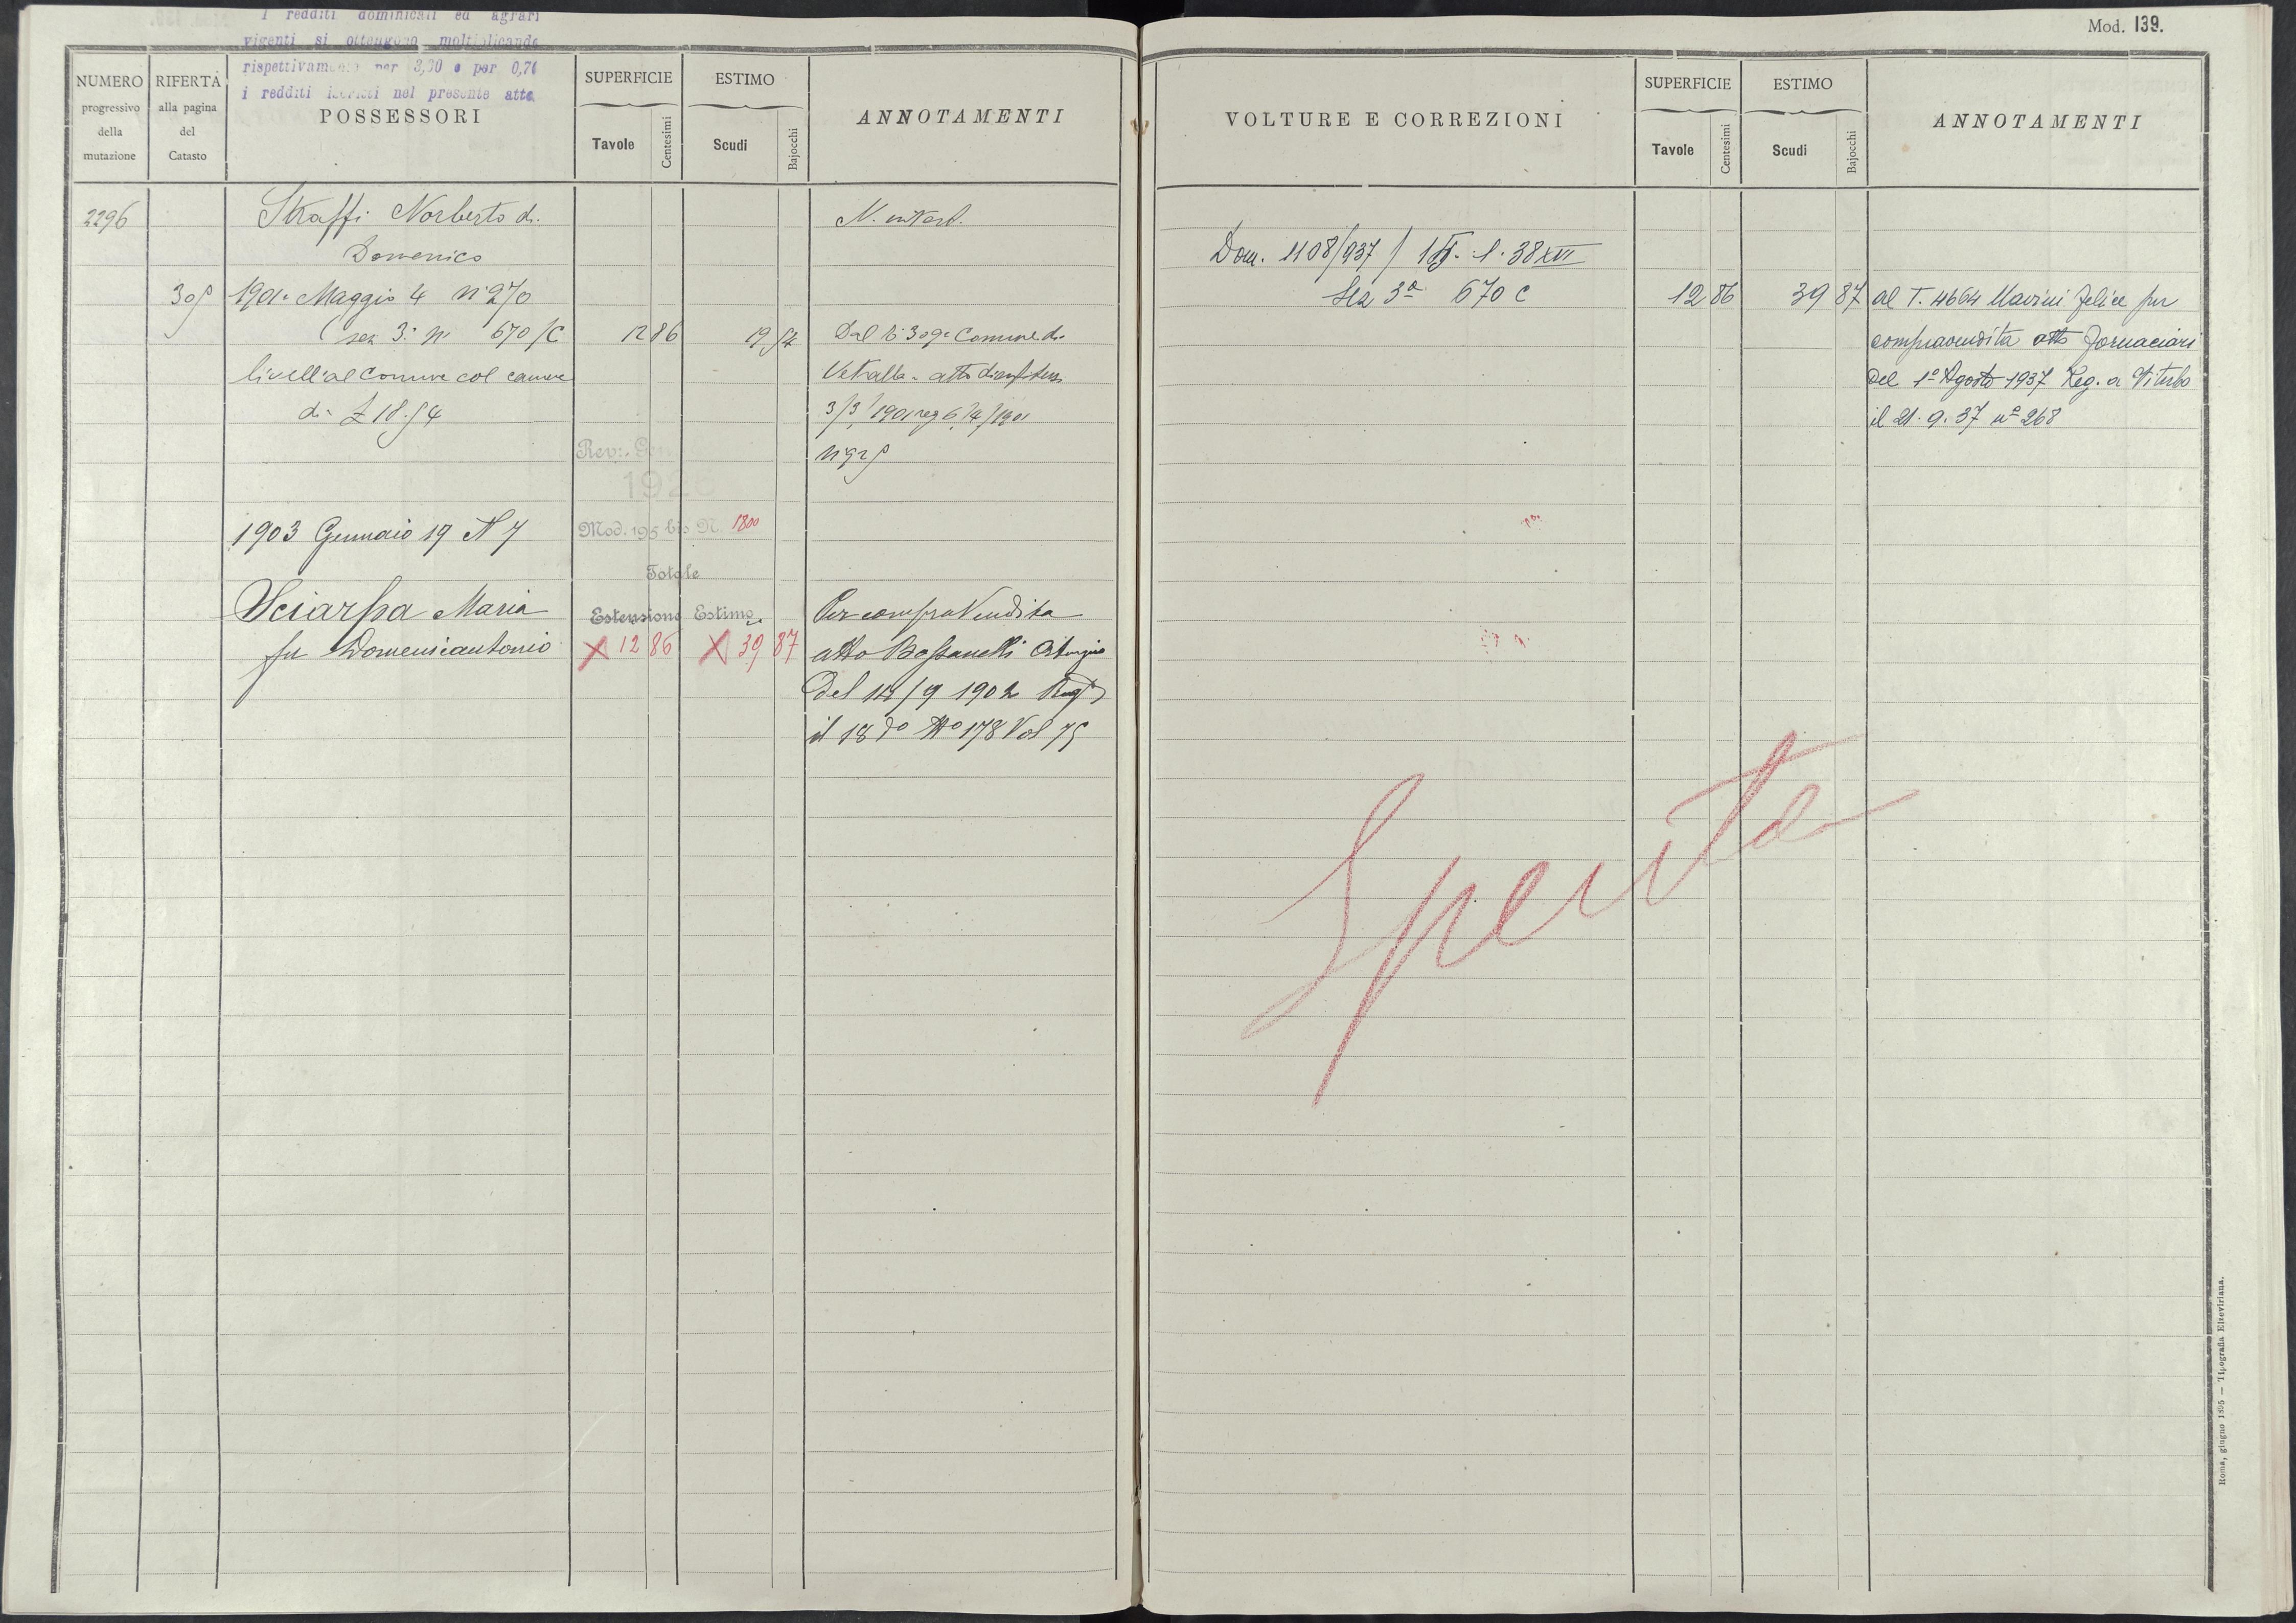 I redditi dominicali ed agrari
vigenti si ottengono moltiplicando
rispettivamente per 3,30 e per 0,70
i redditi iscritti nel presente atto.
NUMERO
progressivo
della
mutazione
RIFERTA
alla pagina
del
Catasto
POSSESSORI
SUPERFICIE
Tavole
Centesimi
ESTIMO
Scudi
Bajocchi
ANNOTAMENTI
2296
Straffi Norberto di
Domenico
N. intest.
1901 Maggio 4 N° 270
sez 3ª n 670/C
12 86
Dal T. Comune di
livell. al Comune col canone
Vetralla - atto di enfiteusi
di £ 18.54
3/3/1901 reg 6/4/1901
Rev:. Gen
1926
1903 Gennaio 19 N 7
Mod. 195 bis N. 1800
Totale
Sciarpa Maria
Estensione Estimo
Per compra Vendita
fu Domenicantonio
X 12 86 X 39 87
atto
Del 14/9 1902 Regto
il 18 do No 178 Vol 75
Mod. 139.
VOLTURE E CORREZIONI
SUPERFICIE
Tavole
Centesimi
ESTIMO
Scudi
Bajocchi
ANNOTAMENTI
Dom. 1108/937 / 1.38 XVI
Sez 3ª 670 C
12 86
39 87
al T. 4664 Marini Felice per
compravendita atto Fornaciari
del 1° Agosto 1937 Reg. a Viterbo
il 21.9.37 n° 268
Spenta
Roma, giugno 1895 — Tipografia Elzeviriana.